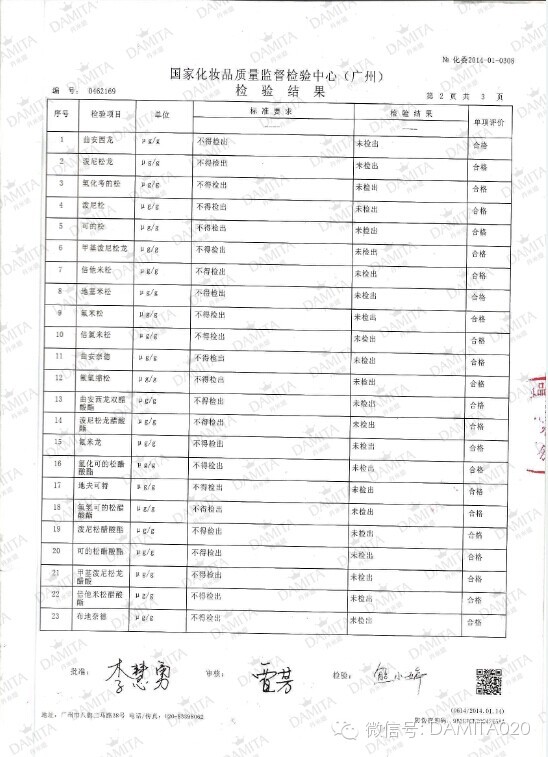 № 化委2014-01-0308
国家化妆品质量监督检验中心（广州）
检 验 结 果
编 号： 0462169
第 2 页 共 3 页
序号 检验项目 单位 标准要求 检验结果 单项评价
1 曲安西龙 μg/g 不得检出 未检出 合格
2 泼尼松龙 μg/g 不得检出 未检出 合格
3 氢化考的松 μg/g 不得检出 未检出 合格
4 泼尼松 μg/g 不得检出 未检出 合格
5 可的松 μg/g 不得检出 未检出 合格
6 甲基泼尼松龙 μg/g 不得检出 未检出 合格
7 倍他米松 μg/g 不得检出 未检出 合格
8 地塞米松 μg/g 不得检出 未检出 合格
9 氟米松 μg/g 不得检出 未检出 合格
10 倍氯米松 μg/g 不得检出 未检出 合格
11 曲安奈德 μg/g 不得检出 未检出 合格
12 氟氢缩松 μg/g 不得检出 未检出 合格
13 曲安西龙双醋酸酯 μg/g 不得检出 未检出 合格
14 泼尼松龙醋酸酯 μg/g 不得检出 未检出 合格
15 氟米龙 μg/g 不得检出 未检出 合格
16 氢化可的松醋酸酯 μg/g 不得检出 未检出 合格
17 地夫可特 μg/g 不得检出 未检出 合格
18 氟氢可的松醋酸酯 μg/g 不得检出 未检出 合格
19 泼尼松醋酸酯 μg/g 不得检出 未检出 合格
20 可的松醋酸酯 μg/g 不得检出 未检出 合格
21 甲基泼尼松龙醋酸 μg/g 不得检出 未检出 合格
22 倍他米松醋酸酯 μg/g 不得检出 未检出 合格
23 布地奈德 μg/g 不得检出 未检出 合格
批准： 李慧勇 审核： 曹芳 检验： 熊小婷
地址：广州市八旗二马路38号 电话/传真：020-83398062
微信号: DAMITA020
DAMITA